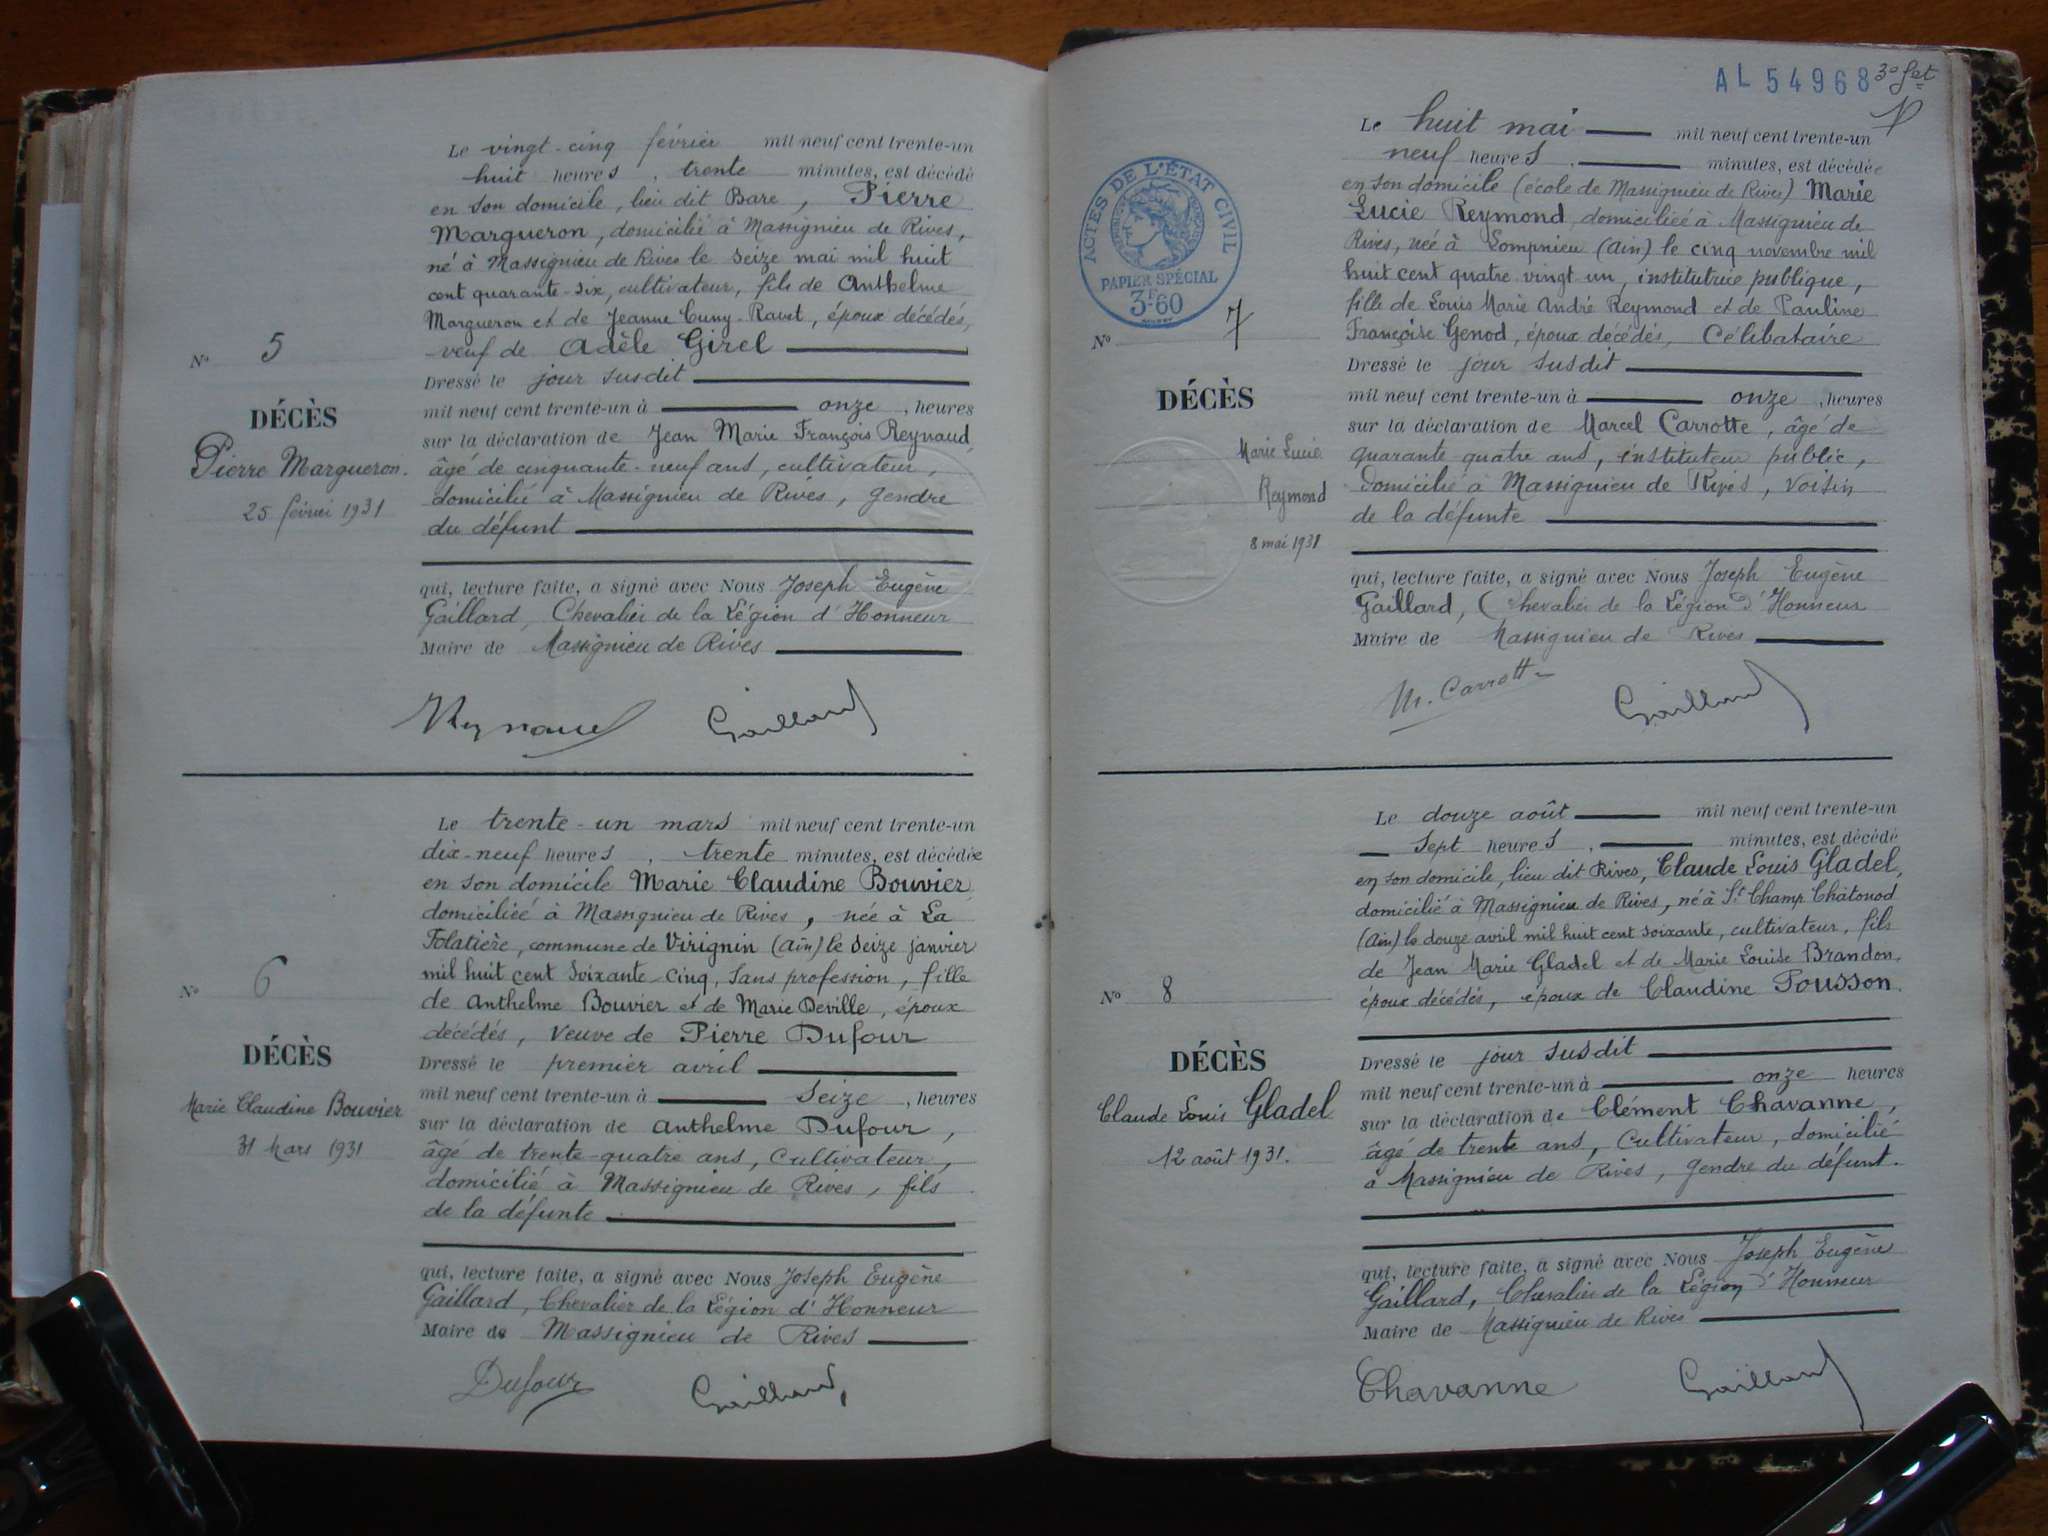 Le vingt-cinq février mil neuf cent trente-un
huit heures, trente minutes, est décédé
en son domicile, lieu dit Bare, Pierre
Margueron, domicilié à Massignieu de Rives,
né à Massignieu de Rives le seize mai mil huit
cent quarante-six, cultivateur, fils de Anthelme
Margueron et de Jeanne Cuny-Ravet, époux décédés,
veuf de Adèle Girel
N° 5
Dressé le jour susdit
DÉCÈS
mil neuf cent trente-un à onze, heures
sur la déclaration de Jean Marie François Reynaud,
Pierre Margueron.
âgé de cinquante-neuf ans, cultivateur,
25 février 1931
domicilié à Massignieu de Rives, gendre
du défunt
qui, lecture faite, a signé avec Nous Joseph Eugène
Gaillard, Chevalier de la Légion d'Honneur
Maire de Massignieu de Rives
Reynaud Gaillard
Le trente-un mars mil neuf cent trente-un
dix-neuf heures, trente minutes, est décédée
en son domicile Marie Claudine Bouvier
domiciliée à Massignieu de Rives, née à La
Folatière, commune de Virignin (Ain) le seize janvier
mil huit cent soixante-cinq, sans profession, fille
N° 6
de Anthelme Bouvier et de Marie Deville, époux
décédés, veuve de Pierre Dufour
DÉCÈS
Dressé le premier avril
mil neuf cent trente-un à seize, heures
Marie Claudine Bouvier
sur la déclaration de Anthelme Dufour,
31 Mars 1931
âgé de trente-quatre ans, cultivateur,
domicilié à Massignieu de Rives, fils
de la défunte
qui, lecture faite, a signé avec Nous Joseph Eugène
Gaillard, Chevalier de la Légion d'Honneur
Maire de Massignieu de Rives
Dufour Gaillard
AL 54968 3e
Le huit mai mil neuf cent trente-un
neuf heures, minutes, est décédée
en son domicile (école de Massignieu de Rives) Marie
Lucie Reymond, domiciliée à Massignieu de
Rives, née à Lompnieu (Ain) le cinq novembre mil
huit cent quatre vingt un, institutrice publique,
fille de Louis Marie André Reymond et de Pauline
Françoise Genod, époux décédés, Célibataire
ACTES DE L'ÉTAT CIVIL
PAPIER SPÉCIAL
3F60
N° 7
Dressé le jour susdit
DÉCÈS
mil neuf cent trente-un à onze, heures
sur la déclaration de Marcel Carrotte, âgé de
Marie Lucie
quarante quatre ans, instituteur public,
Reymond
domicilié à Massignieu de Rives, voisin
de la défunte
8 mai 1931
qui, lecture faite, a signé avec Nous Joseph Eugène
Gaillard, Chevalier de la Légion d'Honneur
Maire de Massignieu de Rives
M. Carrotte Gaillard
Le douze août mil neuf cent trente-un
sept heures, minutes, est décédé
en son domicile, lieu dit Rives, Claude Louis Gladel,
domicilié à Massignieu de Rives, né à St Champ Chatonod
(Ain) le douze avril mil huit cent soixante, cultivateur, fils
de Jean Marie Gladel et de Marie Louise Brandon,
N° 8
époux décédés, époux de Claudine Pousson.
DÉCÈS
Dressé le jour susdit
mil neuf cent trente-un à onze heures
Claude Louis Gladel
sur la déclaration de Clément Chavanne,
12 août 1931.
âgé de trente ans, cultivateur, domicilié
à Massignieu de Rives, gendre du défunt.
qui, lecture faite, a signé avec Nous Joseph Eugène
Gaillard, Chevalier de la Légion d'Honneur
Maire de Massignieu de Rives
Chavanne Gaillard